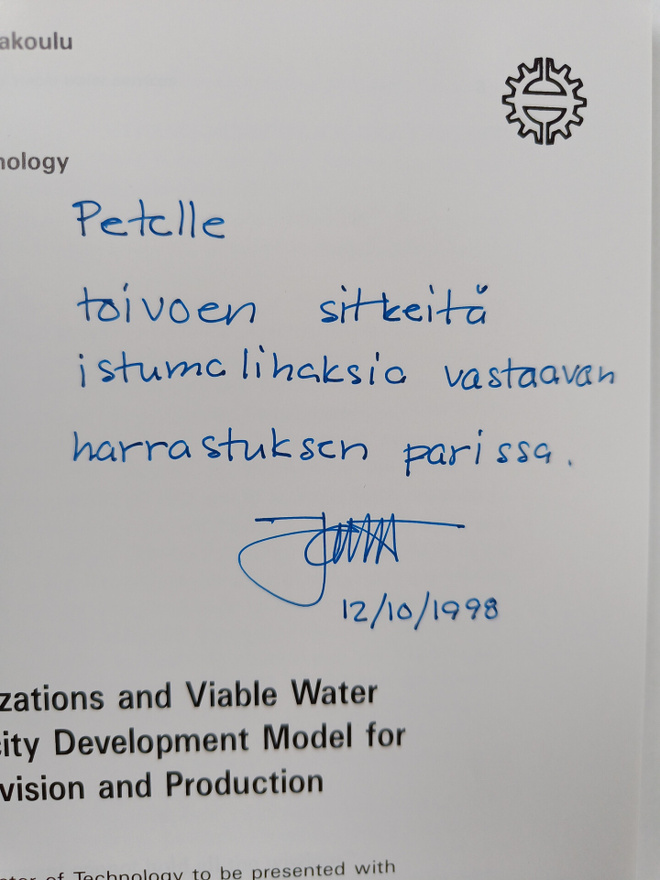 akoulu
nology
Petelle
toivoen sitkeitä
istumalihaksia vastaavan
harrastuksen parissa.
12/10/1998
zations and Viable Water
city Development Model for
vision and Production
of Technology to be presented with